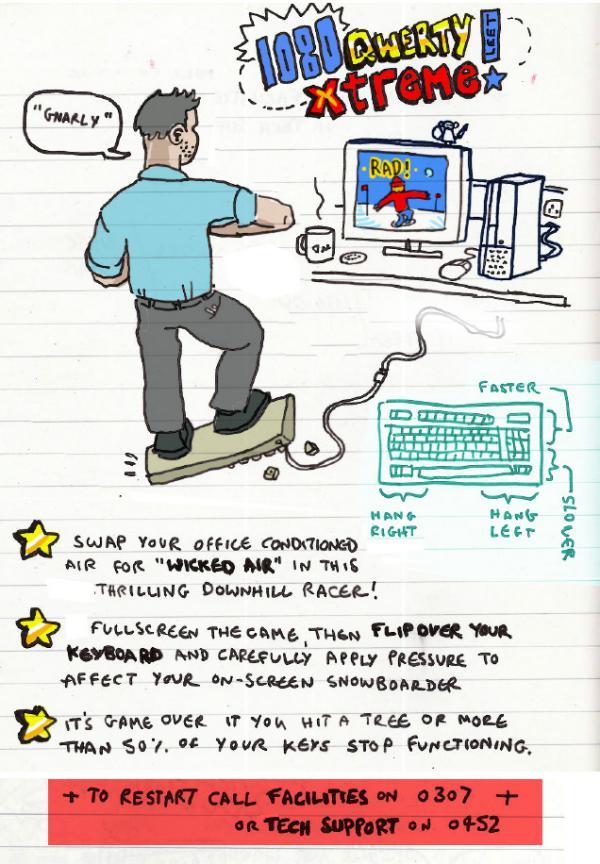 1080 QWERTY LEET!
Xtreme
"GNARLY"
RAD!
FASTER
SLOWER
HANG RIGHT
HANG LEFT
SWAP YOUR OFFICE CONDITIONED
AIR FOR "WICKED AIR" IN THIS
THRILLING DOWNHILL RACER!
FULLSCREEN THE GAME, THEN FLIP OVER YOUR
KEYBOARD AND CAREFULLY APPLY PRESSURE TO
AFFECT YOUR ON-SCREEN SNOWBOARDER
IT'S GAME OVER IF YOU HIT A TREE OR MORE
THAN 50% OF YOUR KEYS STOP FUNCTIONING.
+ TO RESTART CALL FACILITIES ON 0307 +
OR TECH SUPPORT ON 0452